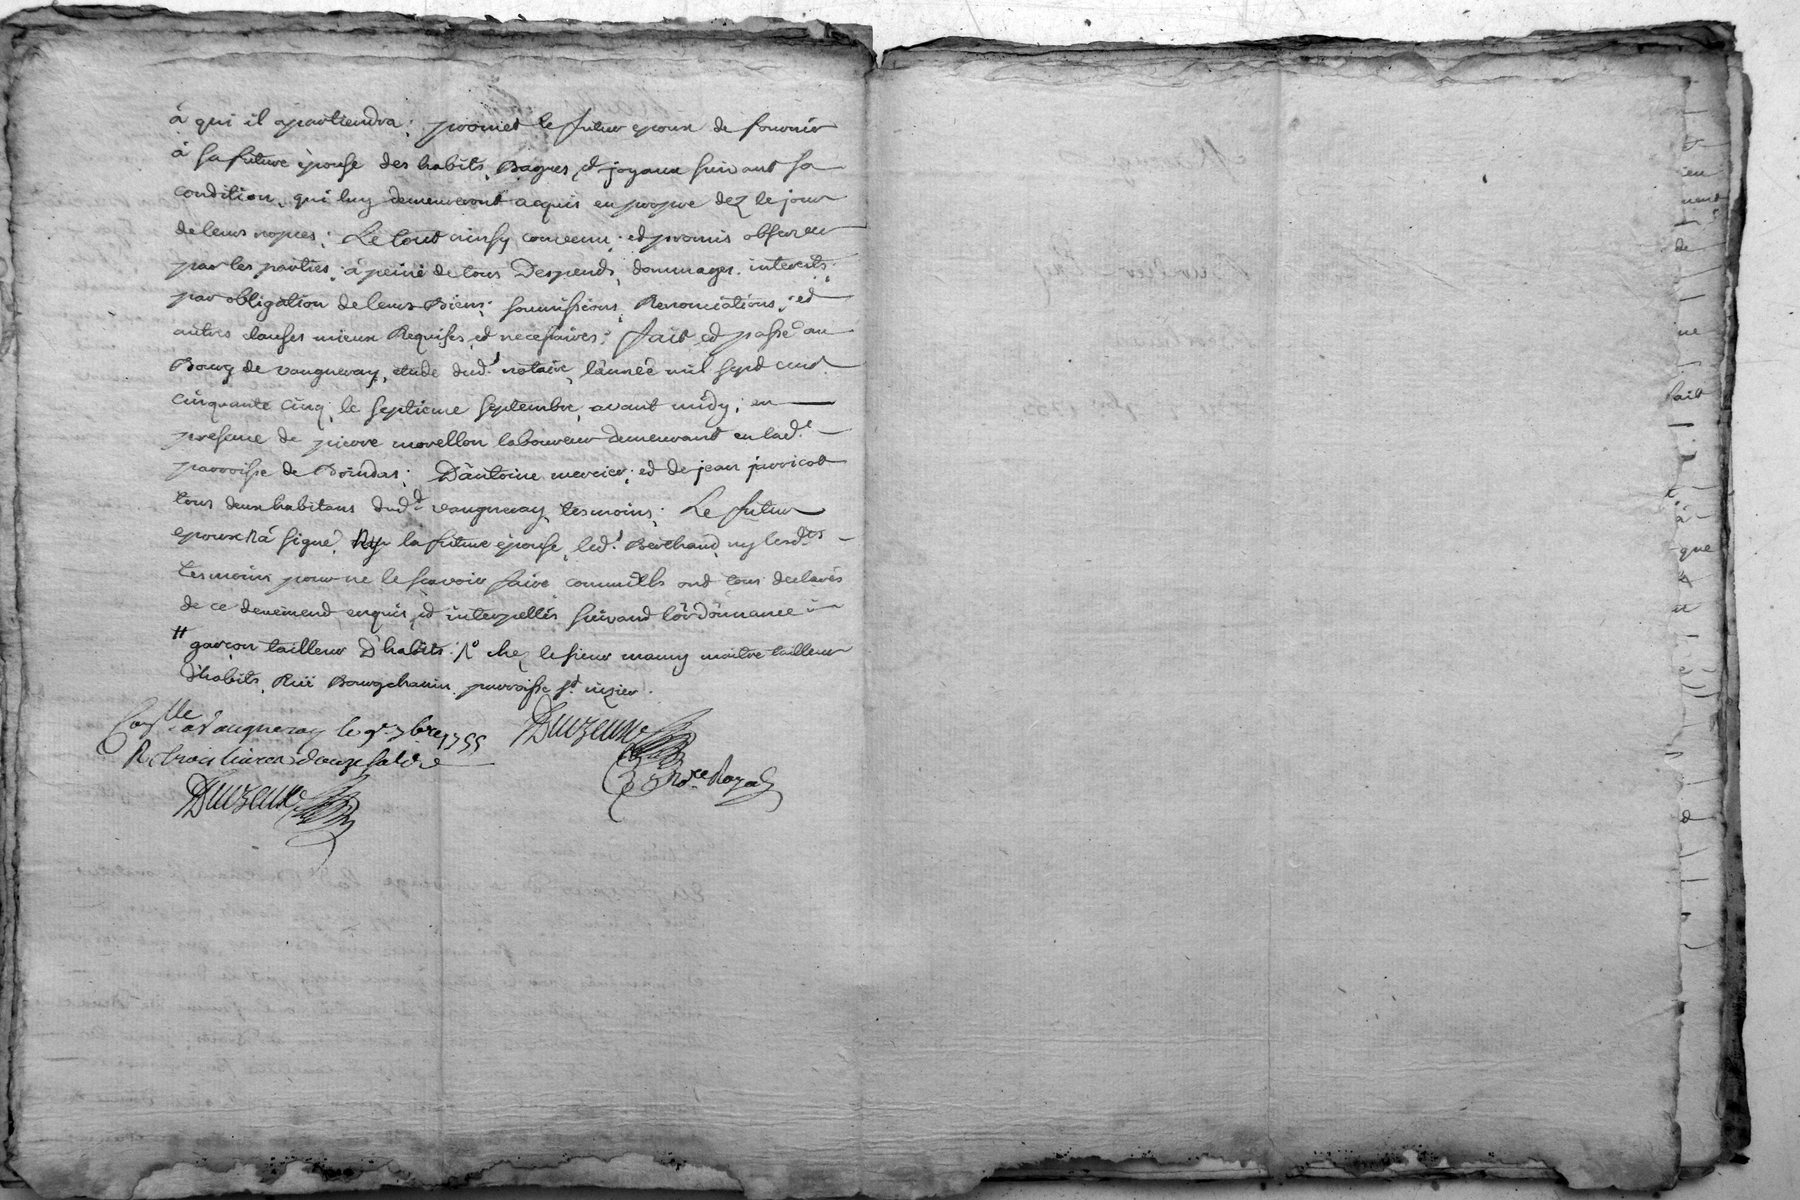 à qui il apartiendra; promet le futur epoux de fournir
à sa future épouse des habits, Bagues, et joyaux suivant sa
condition, qui luy demeureront acquis en propre dez le jour
de leurs nopces; Le tout ainsy convenu, et promis observer
par les parties, à peine de tous Despends, dommages, interests,
par obligation de leurs Biens; soumissions, Renonciations, et
autres clauses mieux Requises, et necessaires; fait, et passé au
Bourg de vaugneray, etude dud.t notaire, l'année mil sept cent
cinquante cinq, le septieme septembre, avant midy, en
presence de pierre morellon laboureur demeurant en lad.e
parroisse de Brindas; D'antoine mercier, et de jean jurricot
tous deux habitans dud.t vaugneray tesmoins; Le futur
epoux n'a signé, Ny la future épouse, led.t Berthaud, ny lesd.ts
tesmoins pour ne le scavoir faire comm'ils ont tous declarés
de ce deuement enquis, et interpellés suivant l'ordonnance
# garçon tailleur d'habits; /.° chez le sieur mamy maitre tailleur
d'habits, Rüe Bourgchanin, parroisse s.t nizier.
Con.lle a Vaugneray le 9.e 7bre 1755
R. trois livres douze sols
Duvzeux
Duvzeux
No.re Royal
en
de
ne
fait
à
que